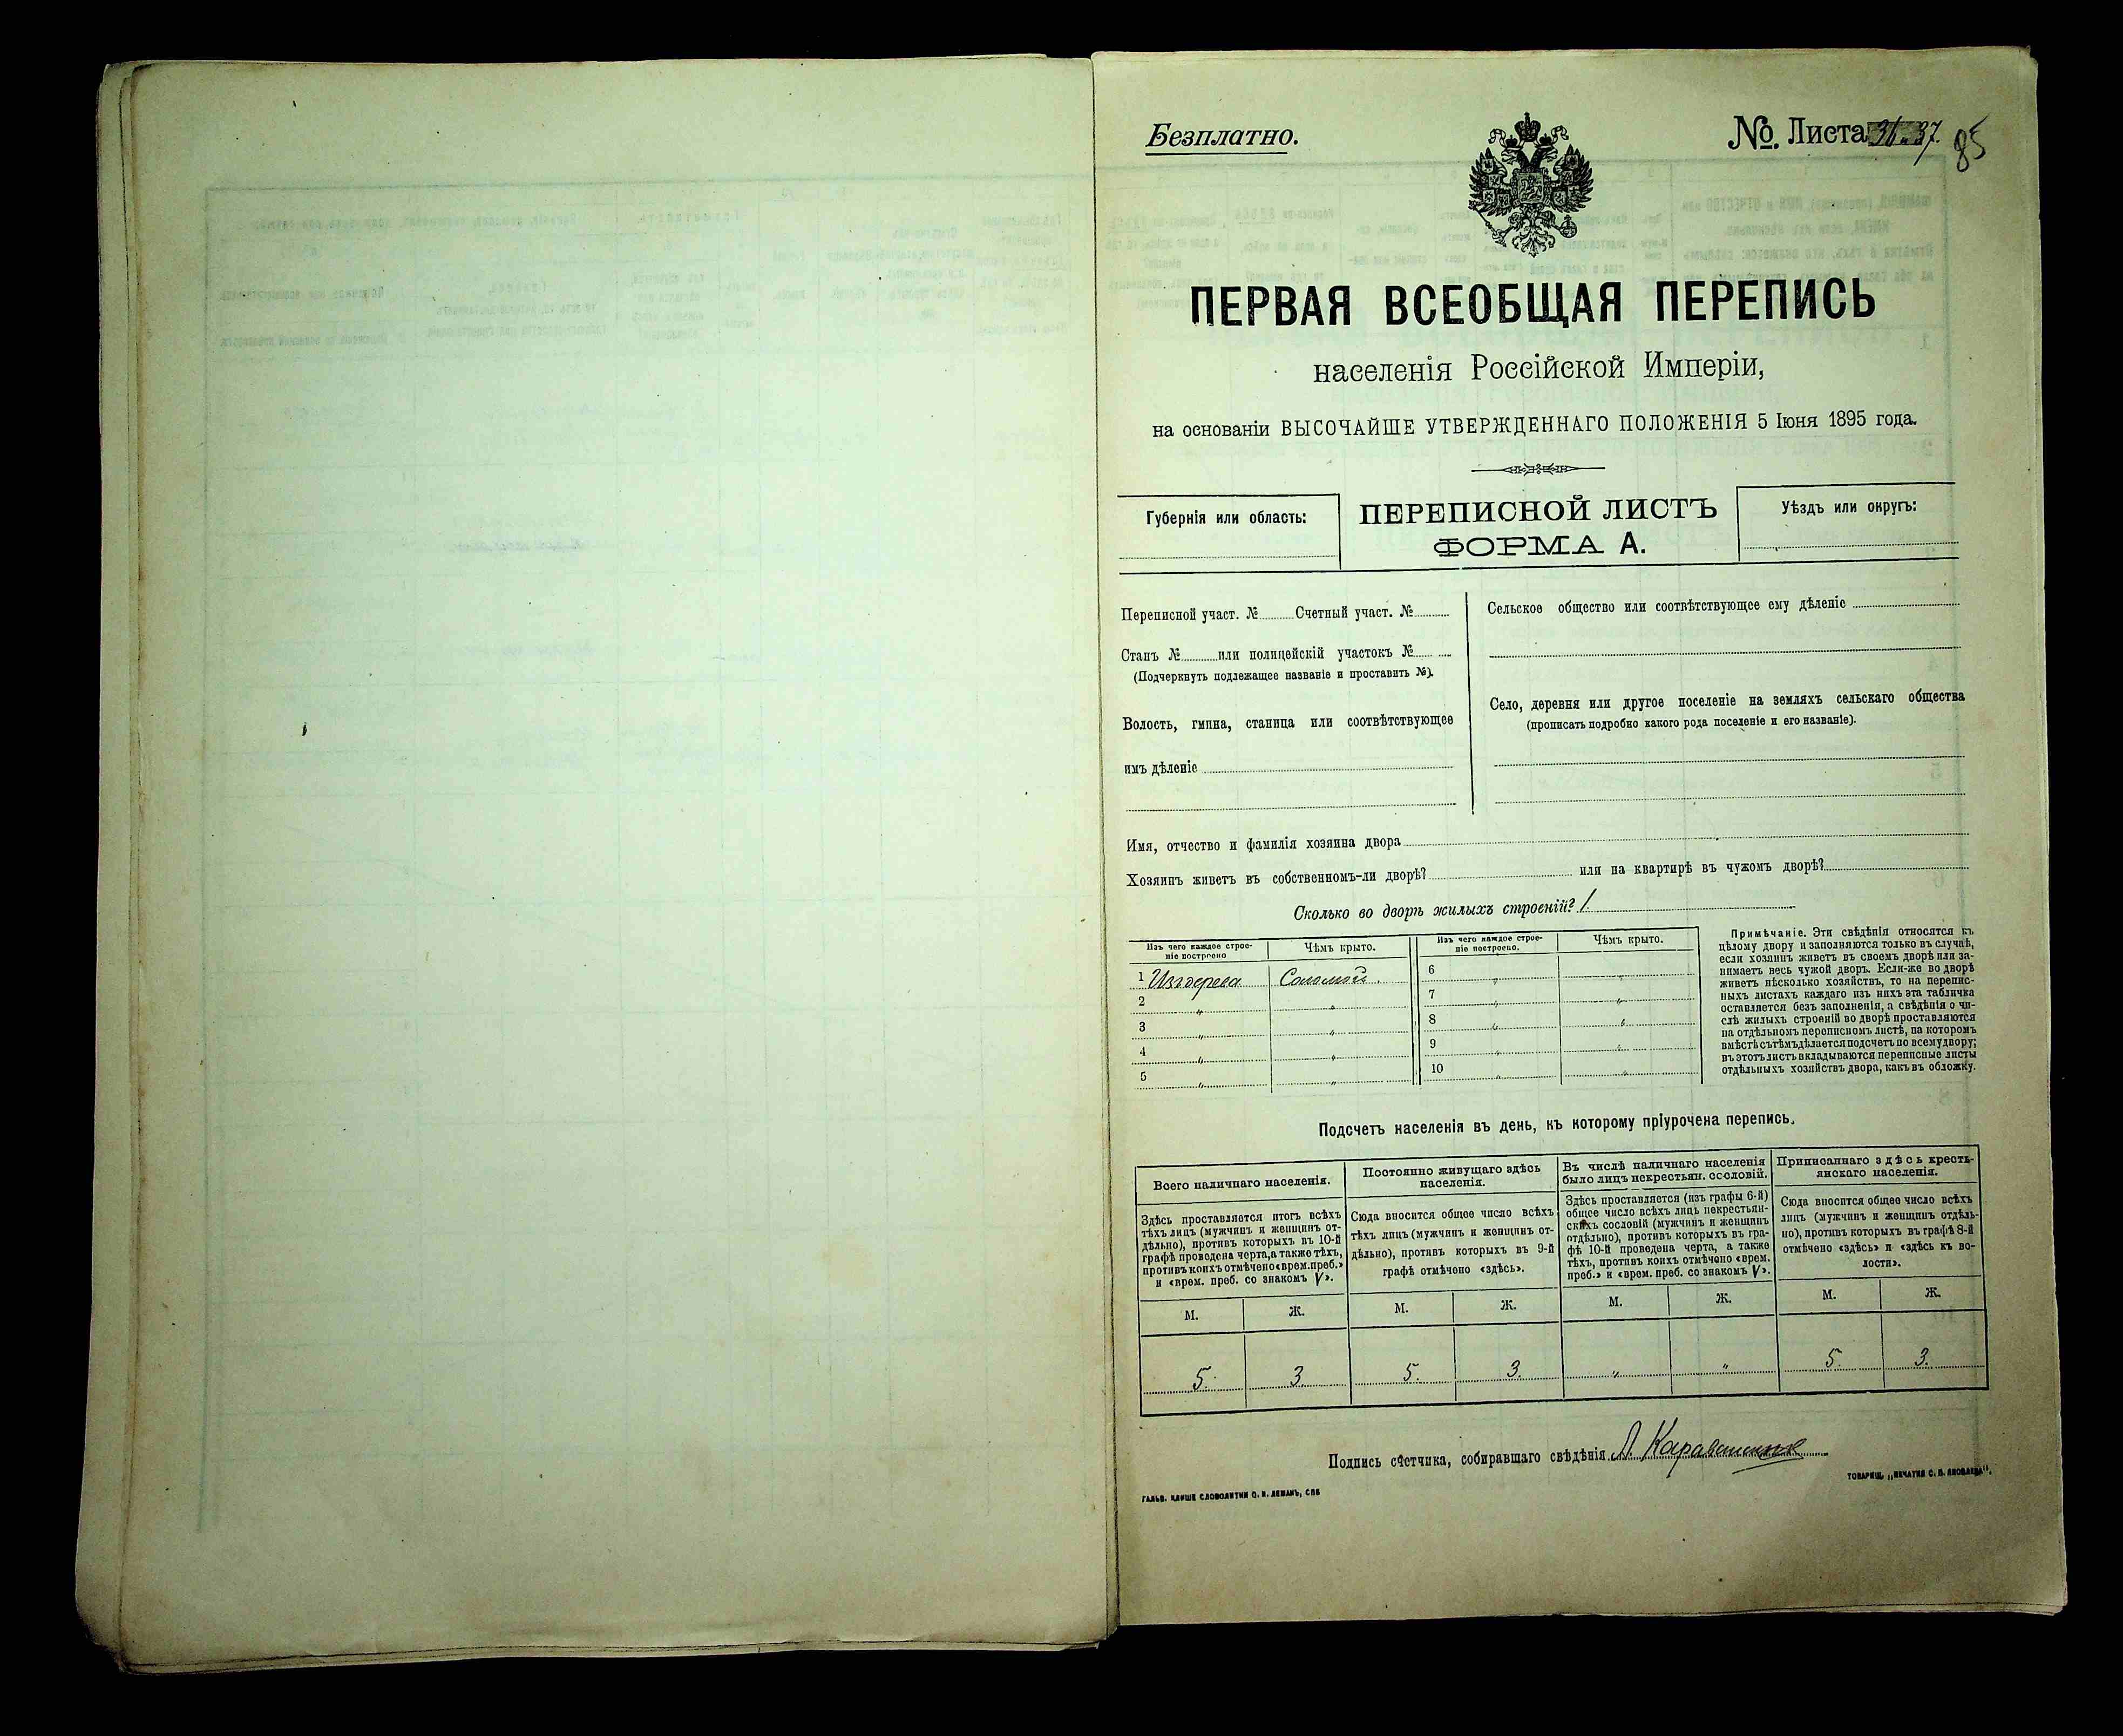 Безплатно.
№. Листа 37.
85
ПЕРВАЯ ВСЕОБЩАЯ ПЕРЕПИСЬ
населенія Россійской Имперіи,
на основаніи ВЫСОЧАЙШЕ УТВЕРЖДЕННАГО ПОЛОЖЕНІЯ 5 Іюня 1895 года.
Губернія или область:
ПЕРЕПИСНОЙ ЛИСТЪ
ФОРМА А.
Уѣздъ или округъ:
Переписной участ. № Счетный участ. №
Станъ № или полицейскій участокъ №
(Подчеркнуть подлежащее названіе и проставить №).
Волость, гмина, станица или соотвѣтствующее
имъ дѣленіе
Сельское общество или соотвѣтствующее ему дѣленіе
Село, деревня или другое поселеніе на земляхъ сельскаго общества
(прописать подробно какого рода поселеніе и его названіе).
Имя, отчество и фамилія хозяина двора
Хозяинъ живетъ въ собственномъ-ли дворѣ? или на квартирѣ въ чужомъ дворѣ?
Сколько во дворѣ жилыхъ строеній? 1.
Изъ чего каждое строе-
ніе построено
Чѣмъ крыто.
Изъ чего каждое строе-
ніе построено.
Чѣмъ крыто.
1 Изъ дерева Соломой.
2 „ „
3 „ „
4 „ „
5 „ „
6 „ „
7 „ „
8 „ „
9 „ „
10 „ „
Примѣчаніе. Эти свѣдѣнія относятся къ
цѣлому двору и заполняются только въ случаѣ,
если хозяинъ живетъ въ своемъ дворѣ или за-
нимаетъ весь чужой дворъ. Если-же во дворѣ
живетъ нѣсколько хозяйствъ, то на перепис-
ныхъ листахъ каждаго изъ нихъ эта табличка
оставляется безъ заполненія, а свѣдѣнія о чи-
слѣ жилыхъ строеній во дворѣ проставляются
на отдѣльномъ переписномъ листѣ, на которомъ
вмѣстѣ съ тѣмъ дѣлается подсчетъ по всему двору;
въ этотъ листъ вкладываются переписные листы
отдѣльныхъ хозяйствъ двора, какъ въ обложку.
Подсчетъ населенія въ день, къ которому пріурочена перепись.
Всего наличнаго населенія.
Здѣсь проставляется итогъ всѣхъ
тѣхъ лицъ (мужчинъ и женщинъ от-
дѣльно), противъ которыхъ въ 10-й
графѣ проведена черта, а также тѣхъ,
противъ коихъ отмѣчено «врем. преб.»
и «врем. преб. со знакомъ V».
Постоянно живущаго здѣсь
населенія.
Сюда вносится общее число всѣхъ
тѣхъ лицъ (мужчинъ и женщинъ от-
дѣльно), противъ которыхъ въ 9-й
графѣ отмѣчено «здѣсь».
Въ числѣ наличнаго населенія
было лицъ некрестьян. сословій.
Здѣсь проставляется (изъ графы 6-й)
общее число всѣхъ лицъ некрестьян-
скихъ сословій (мужчинъ и женщинъ
отдѣльно), противъ которыхъ въ гра-
фѣ 10-й проведена черта, а также
тѣхъ, противъ коихъ отмѣчено «врем.
преб.» и «врем. преб. со знакомъ V».
Приписаннаго здѣсь кресть-
янскаго населенія.
Сюда вносится общее число всѣхъ
лицъ (мужчинъ и женщинъ отдѣль-
но), противъ которыхъ въ графѣ 8-й
отмѣчено «здѣсь» и «здѣсь къ во-
лости».
М. Ж. М. Ж. М. Ж. М. Ж.
5. 3. 5. 3. „ „ 5. 3.
Подпись счетчика, собиравшаго свѣдѣнія
ГАЛЬВ. КЛИШЕ СЛОВОЛИТНИ О. И. ЛЕМАНЪ, СПБ
ТОВАРИЩ. „ПЕЧАТНЯ С. П. ЯКОВЛЕВА".